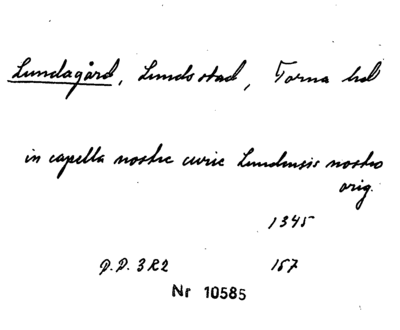 Lundagård, Lunds stad, Torna hd
in capella nostre curie Lundensis nostro
orig.
1345
D.D. 3R2 157
Nr 10585